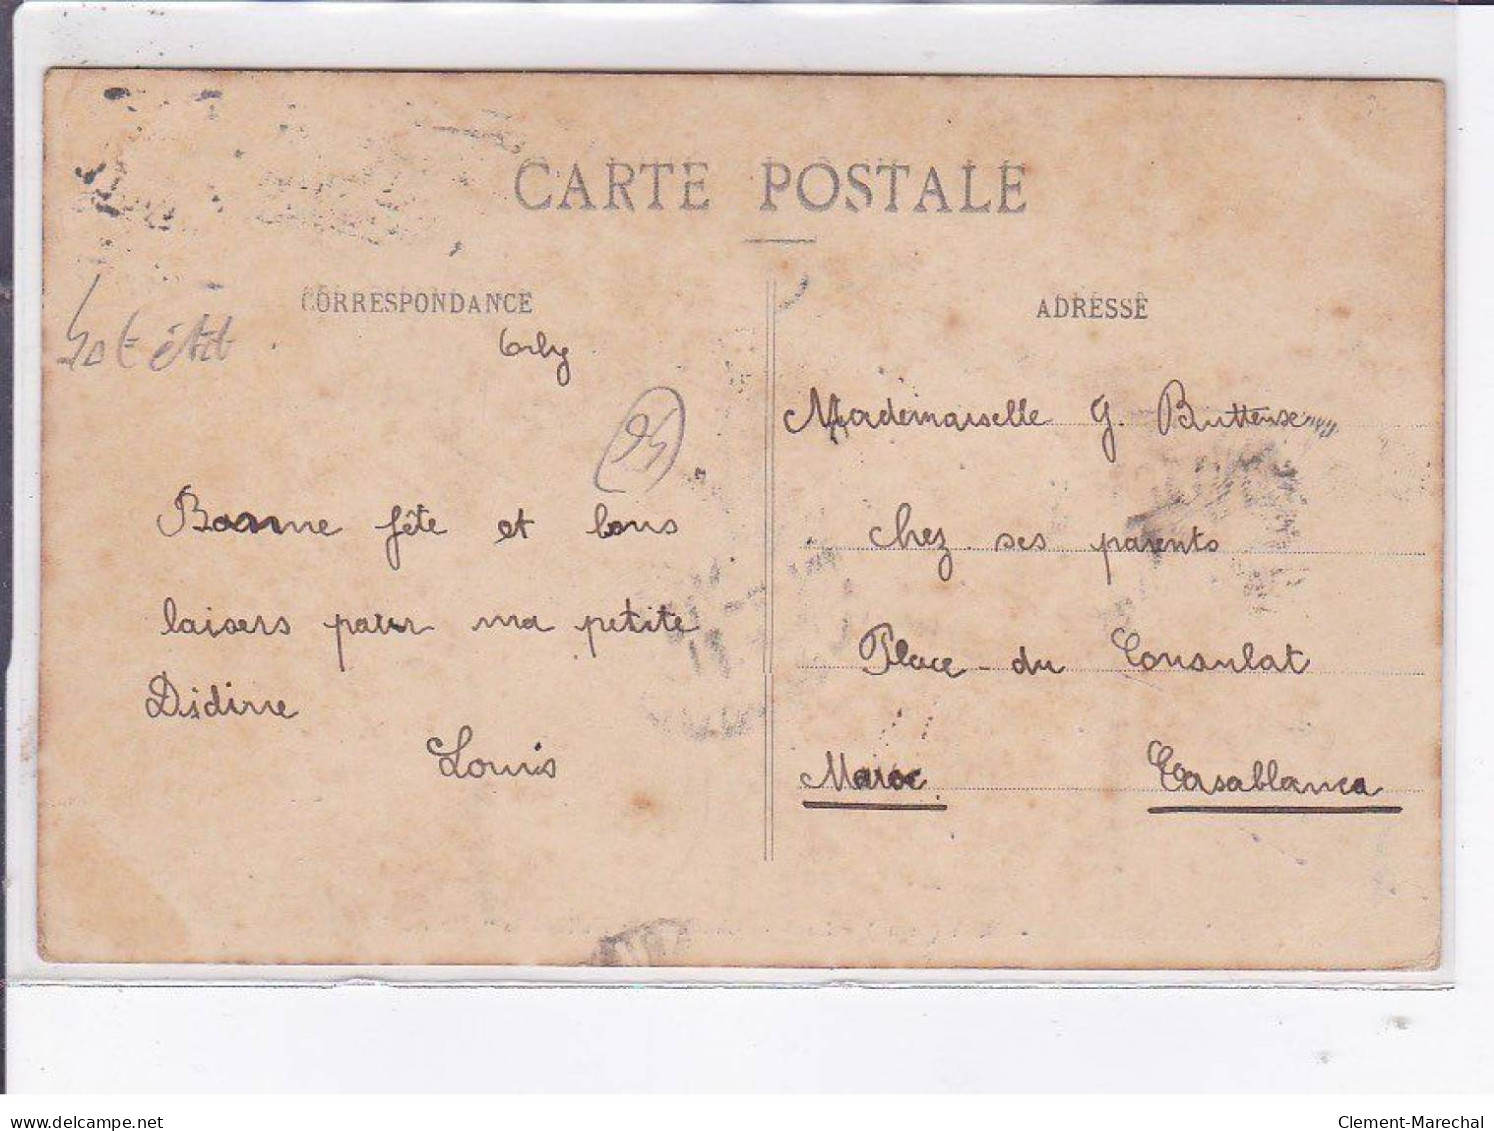 CARTE POSTALE
CORRESPONDANCE
ADRESSE
Orly
94
Bonne fête et bons
baisers pour ma petite
Didine
Louis
Mademoiselle G.
chez ses parents
Place du Consulat
Maroc Casablanca
www.delcampe.net
Clement-Marechal